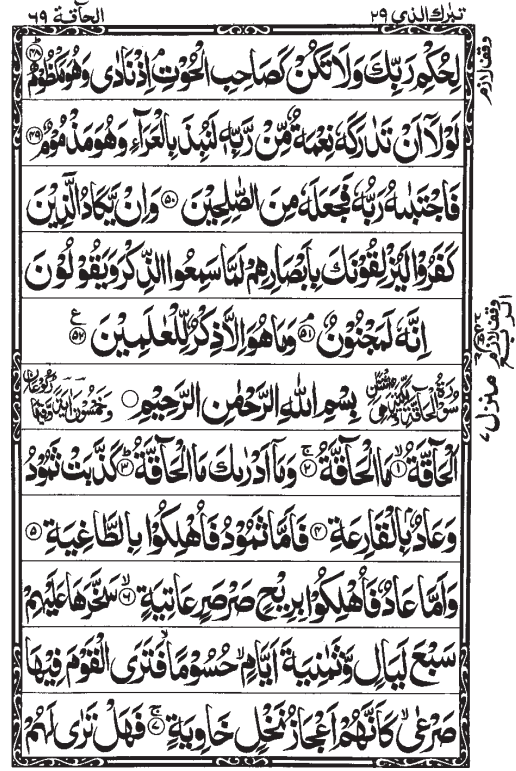 تبٰرك الذي ٢٩
الحآقة ٦٩
لِحُكْمِ رَبِّكَ وَلَا تَكُنْ كَصَاحِبِ الْحُوْتِ ۘ اِذْ نَادٰى وَهُوَ مَكْظُوْمٌ ؕ ﴿٤٨﴾
لَوْلَاۤ اَنْ تَدٰرَكَهٗ نِعْمَةٌ مِّنْ رَّبِّهٖ لَنُبِذَ بِالْعَرَآءِ وَهُوَ مَذْمُوْمٌ ﴿٤٩﴾
فَاجْتَبٰىهُ رَبُّهٗ فَجَعَلَهٗ مِنَ الصّٰلِحِيْنَ ﴿٥٠﴾ وَاِنْ يَّكَادُ الَّذِيْنَ
كَفَرُوْا لَيُزْلِقُوْنَكَ بِاَبْصَارِهِمْ لَمَّا سَمِعُوا الذِّكْرَ وَيَقُوْلُوْنَ
اِنَّهٗ لَمَجْنُوْنٌ ۘ ﴿٥١﴾ وَمَا هُوَ اِلَّا ذِكْرٌ لِّلْعٰلَمِيْنَ ﴿٥٢﴾ ع
سُوْرَةُ الْحَآقَّةِ مَكِّيَّةٌ بِسْمِ اللّٰهِ الرَّحْمٰنِ الرَّحِيْمِ
اَلْحَآقَّةُ ۙ ﴿١﴾ مَا الْحَآقَّةُ ۚ ﴿٢﴾ وَمَاۤ اَدْرٰىكَ مَا الْحَآقَّةُ ؕ ﴿٣﴾ كَذَّبَتْ ثَمُوْدُ
وَعَادٌۢ بِالْقَارِعَةِ ﴿٤﴾ فَاَمَّا ثَمُوْدُ فَاُهْلِكُوْا بِالطَّاغِيَةِ ﴿٥﴾
وَاَمَّا عَادٌ فَاُهْلِكُوْا بِرِيْحٍ صَرْصَرٍ عَاتِيَةٍ ۙ ﴿٦﴾ سَخَّرَهَا عَلَيْهِمْ
سَبْعَ لَيَالٍ وَّثَمٰنِيَةَ اَيَّامٍ ۙ حُسُوْمًا فَتَرَى الْقَوْمَ فِيْهَا
صَرْعٰى ۙ كَاَنَّهُمْ اَعْجَازُ نَخْلٍ خَاوِيَةٍ ۚ ﴿٧﴾ فَهَلْ تَرٰى لَهُمْ
وقف لازم
وقف لازم
منزل ٧